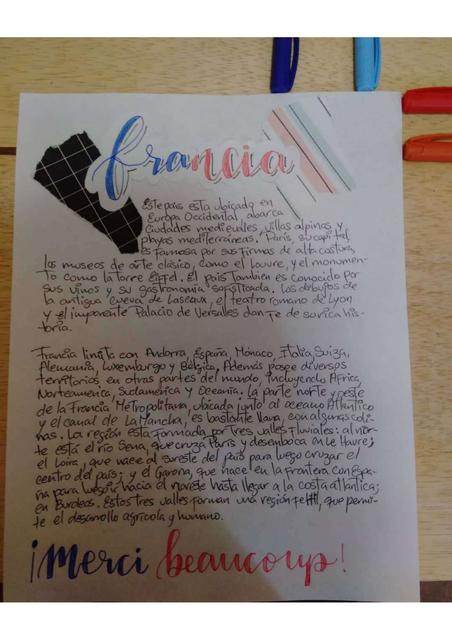 francia
Este país esta ubicado en
Europa Occidental, abarca
Ciudades medievales, villas alpinas y
playas mediterraneas. París, su capital,
es famosa por sus firmas de alta costura,
los museos de arte clásico, como el louvre, y el monumen-
to como la Torre Eiffel. El país También es conocido por
sus vinos y su gastronomía sofisticada. Los dibujos de
la antigua cueva de Lascaux, el teatro romano de Lyon
y el imponente Palacio de Versalles dan Fe de su rica his-
toria.
Francia limita con Andorra, España, Mónaco, Italia, Suiza,
Alemania, Luxemburgo y Bélgica. Además posee diversos
territorios en otras partes del mundo, incluyendo África,
Norteamerica, Sudamérica y Oceanía. La parte norte y oeste
de la Francia Metropolitana, ubicada junto al océano Atlántico
y el canal de La Mancha, es bastante llana, con algunas coli-
nas. La región esta formada por Tres valles Fluviales: al nor-
te está el río Sena, que cruza París y desemboca en Le Havre;
el Loira, que nace al sureste del país para luego cruzar el
centro del país; y el Garona, que nace en la Frontera con Espa-
ña para luego ir hacia el noreste hasta llegar a la costa atlantica;
en Burdeos. Estos tres valles forman una región fertil, que permi-
te el desarrollo agrícola y humano.
¡Merci beaucoup!